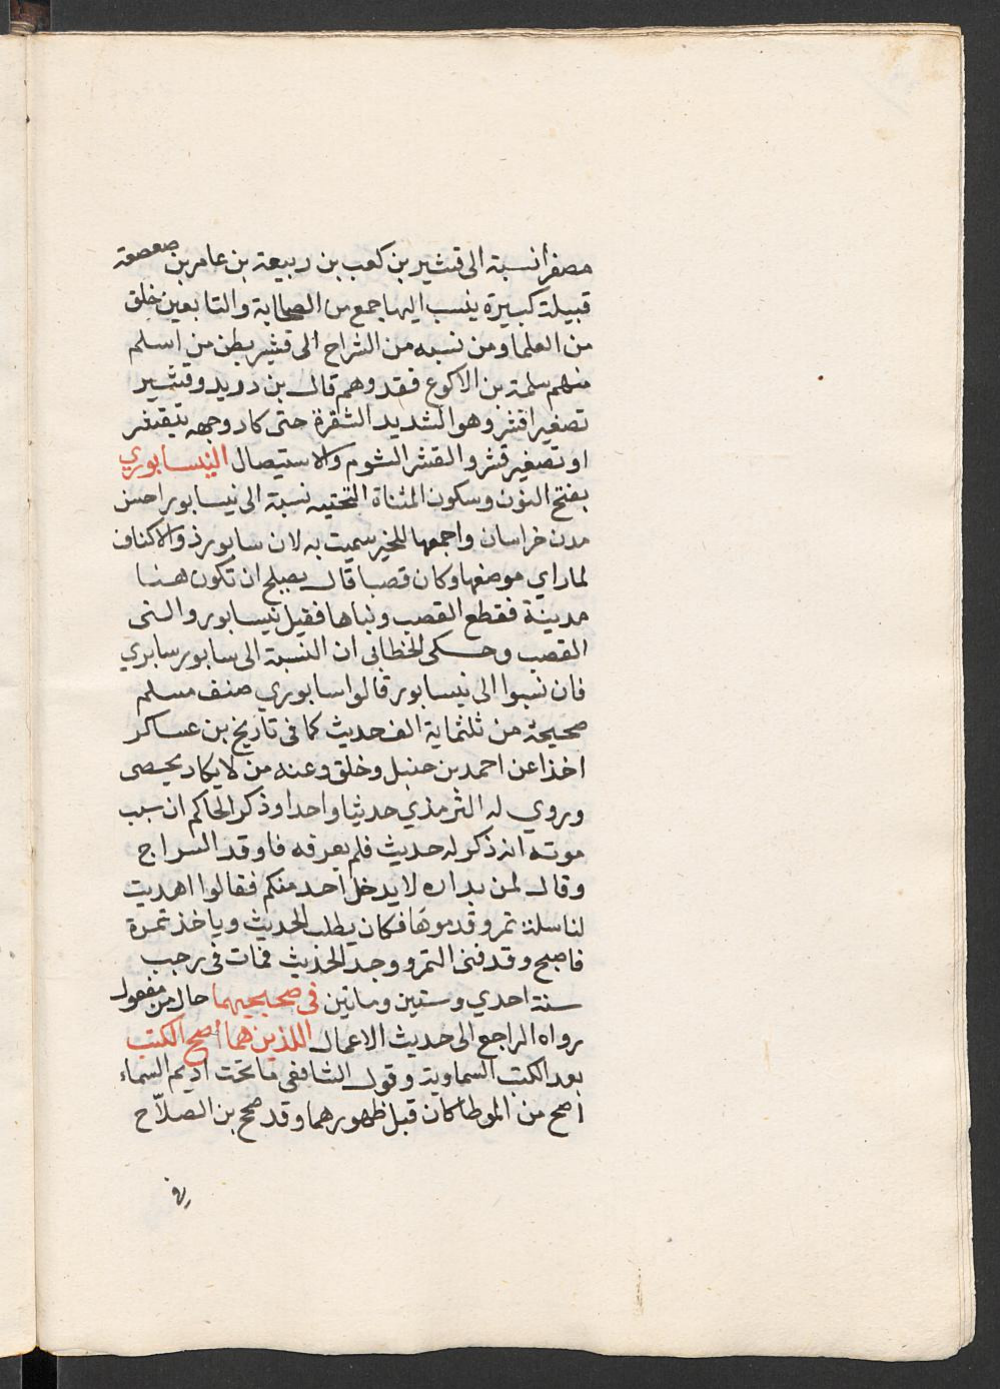 مصغرا نسبة الى قشير بن كعب بن ربيعة بن عامر بن صعصعة
قبيلة كبيرة ينسب اليها جمع من الصحابة والتابعين خلق
من العلما ومن نسبه من الشراح الى قشير بطن من اسلم
منهم سلمة بن الاكوع فقد وهم قال بن دريد وقشير
تصغير اقشر وهو الشديد الشقرة حتى كاد وجهه يتقشر
او تصغير قشر والقشر الشوم والاستيصال النيسابوري
بفتح النون وسكون المثناة التحتيه نسبة الى نيسابور احسن
مدن خراسان واجمعها للخير سميت به لان سابور ذو الاكتاف
لما راي موضعها وكان قصبا قال يصلح ان تكون هنا
مدينة فقطع القصب وبناها فقيل نيسابور والنى
القصب وحكى الخطابى ان النسبة الى سابور سابري
فان نسبوا الى نيسابور قالوا سابوري صنف مسلم
صحيحه من ثلثماية الف حديث كما فى تاريخ بن عساكر
اخذا عن احمد بن حنبل وخلق وعنه من لا يكاد يحصى
وروي له الترمذي حديثا واحدا وذكر الحاكم ان سبب
موته انه ذكر له حديث فلم يعرفه فاوقد السراج
وقال لمن بداره لا يدخل احد منكم فقالوا اهديت
لنا سلة تمر وقدموها فكان يطلب الحديث وياخذ تمرة
فاصبح وقد فنى التمر ووجد الحديث فمات فى رجب
سنة احدي وستين وماتين فى صحيحيهما حال من مفعول
رواه الراجع الى حديث الاعمال اللذين هما اصح الكتب
بعد الكتب السماوية وقول الشافعى ما تحت اديم السماء
أصح من الموطا كان قبل ظهورهما وقد صحح بن الصلاّح